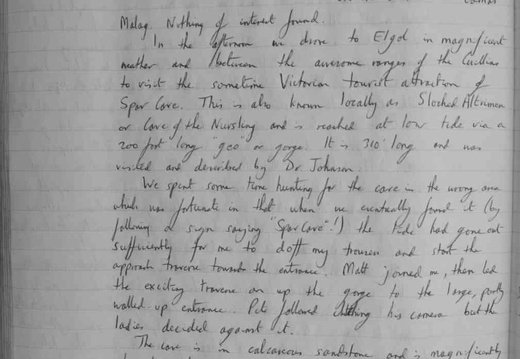 Malag. Nothing of interest found.
In the afternoon we drove to Elgol in magnificent
weather and between the awesome ranges of the Cuillins
to visit the sometime Victorian tourist attraction of
Spar Cave. This is also known locally as Slochd Altriman
or Cave of the Nursling and is reached at low tide via a
200 foot long "geo" or gorge. It is 310' long and was
visited and described by Dr. Johnson.
We spent some time hunting for the cave in the wrong area
which was fortunate in that when we eventually found it (by
following a sign saying "Spar Cave"!) the tide had gone out
sufficiently for me to doff my trousers and start the
approach traverse towards the entrance. Matt joined me, then led
the exciting traverse on up the gorge to the large, partly
walled up entrance. Pete followed clutching his camera but the
ladies decided against it.
The cave is in calcareous sandstone and is magnificently